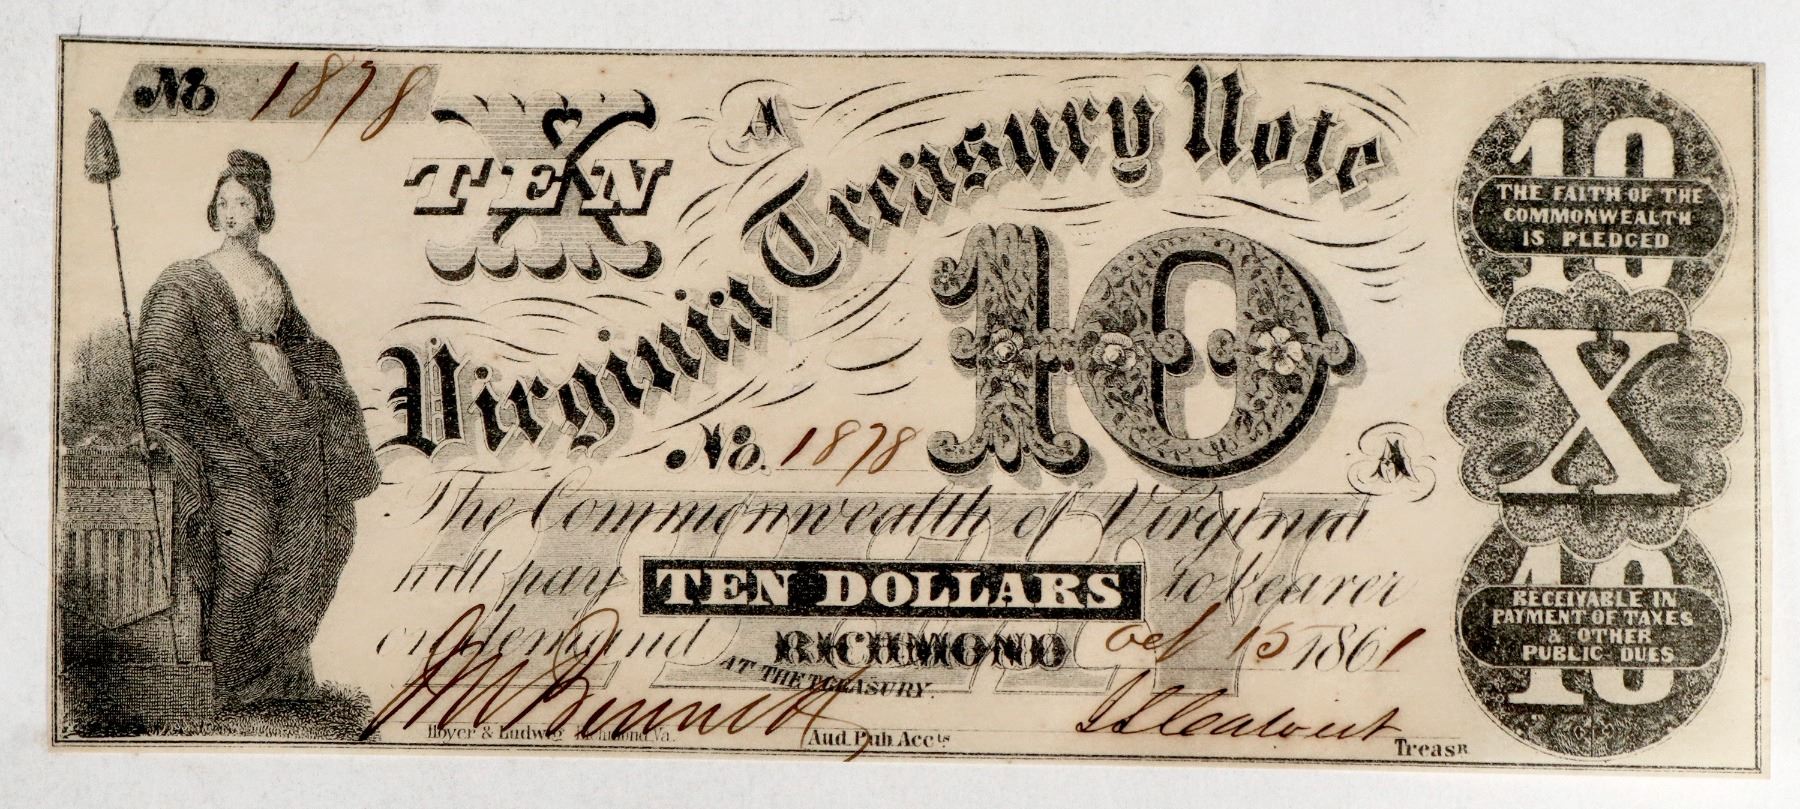 No 1878
X
TEN
A
Virginia Treasury Note
10
No. 1878
A
The Commonwealth of Virginia
will pay TEN DOLLARS to bearer
on demand RICHMOND Oct 15 1861
AT THE TREASURY.
Hoyer & Ludwig Richmond Va.
Aud. Pub. Accts
Treasr
10
THE FAITH OF THE
COMMONWEALTH
IS PLEDGED
X
10
RECEIVABLE IN
PAYMENT OF TAXES
& OTHER
PUBLIC DUES